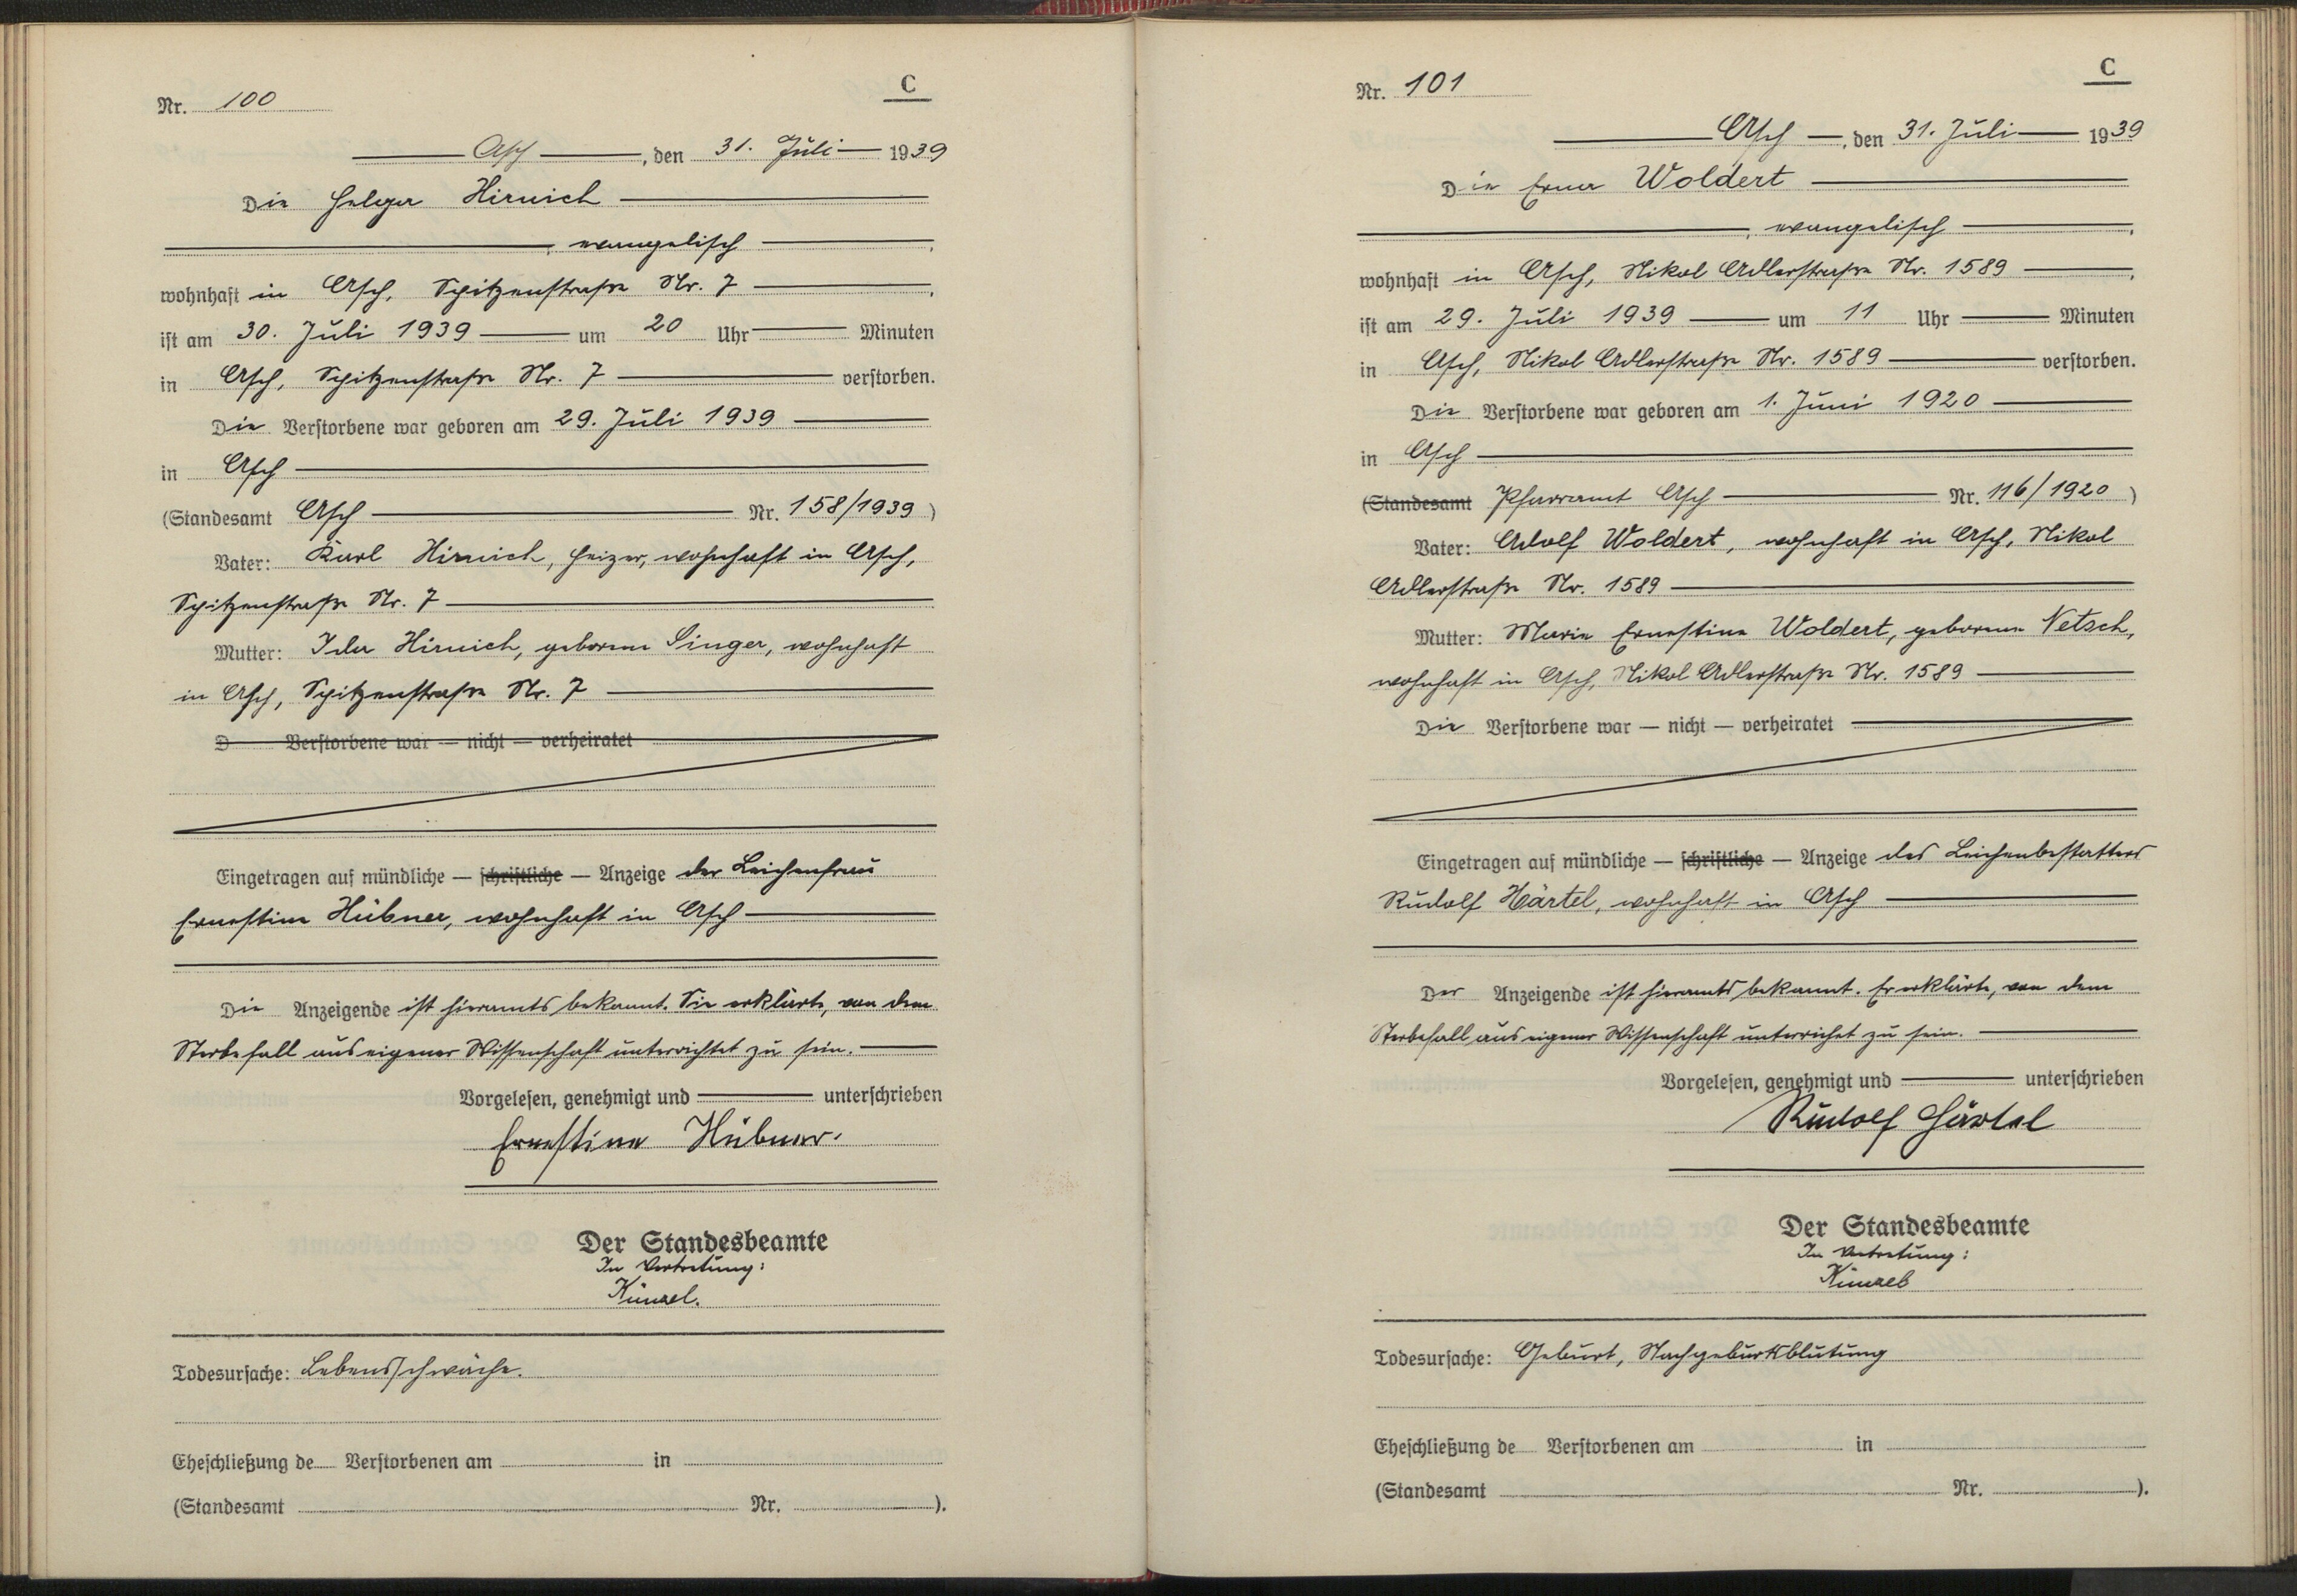 C
Nr. 100
Asch, den 31. Juli 1939
Die Helga Hirnich
, evangelisch,
wohnhaft in Asch, Spitzenstraße Nr. 7,
ist am 30. Juli 1939 um 20 Uhr Minuten
in Asch, Spitzenstraße Nr. 7 verstorben.
Die Verstorbene war geboren am 29. Juli 1939
in Asch
(Standesamt Asch Nr. 158/1939)
Vater: Karl Hirnich, Heizer, wohnhaft in Asch,
Spitzenstraße Nr. 7
Mutter: Ida Hirnich, geborene Singer, wohnhaft
in Asch, Spitzenstraße Nr. 7
D Verstorbene war — nicht — verheiratet
Eingetragen auf mündliche — schriftliche — Anzeige der Leichenfrau
Ernestine Hübner, wohnhaft in Asch
Die Anzeigende ist hieramts bekannt. Sie erklärte, von dem
Sterbefall aus eigener Wissenschaft unterrichtet zu sein.
Vorgelesen, genehmigt und unterschrieben
Ernestine Hübner.
Der Standesbeamte
In Vertretung:
Künzel.
Todesursache: Lebensschwäche.
Eheschließung de Verstorbenen am in
(Standesamt Nr. ).
C
Nr. 101
Asch, den 31. Juli 1939
Die Erna Woldert
, evangelisch,
wohnhaft in Asch, Nikol Adlerstraße Nr. 1589,
ist am 29. Juli 1939 um 11 Uhr Minuten
in Asch, Nikol Adlerstraße Nr. 1589 verstorben.
Die Verstorbene war geboren am 1. Juni 1920
in Asch
(Standesamt Pfarramt Asch Nr. 116/1920)
Vater: Adolf Woldert, wohnhaft in Asch, Nikol
Adlerstraße Nr. 1589
Mutter: Marie Ernestine Woldert, geborene Netsch,
wohnhaft in Asch, Nikol Adlerstraße Nr. 1589
Die Verstorbene war — nicht — verheiratet
Eingetragen auf mündliche — schriftliche — Anzeige des Leichenbestatters
Rudolf Härtel, wohnhaft in Asch
Der Anzeigende ist hieramts bekannt. Er erklärte, von dem
Sterbefall aus eigener Wissenschaft unterrichet zu sein.
Vorgelesen, genehmigt und unterschrieben
Rudolf Härtel
Der Standesbeamte
In Vertretung:
Künzel
Todesursache: Geburt, Nachgeburtsblutung
Eheschließung de Verstorbenen am in
(Standesamt Nr. ).